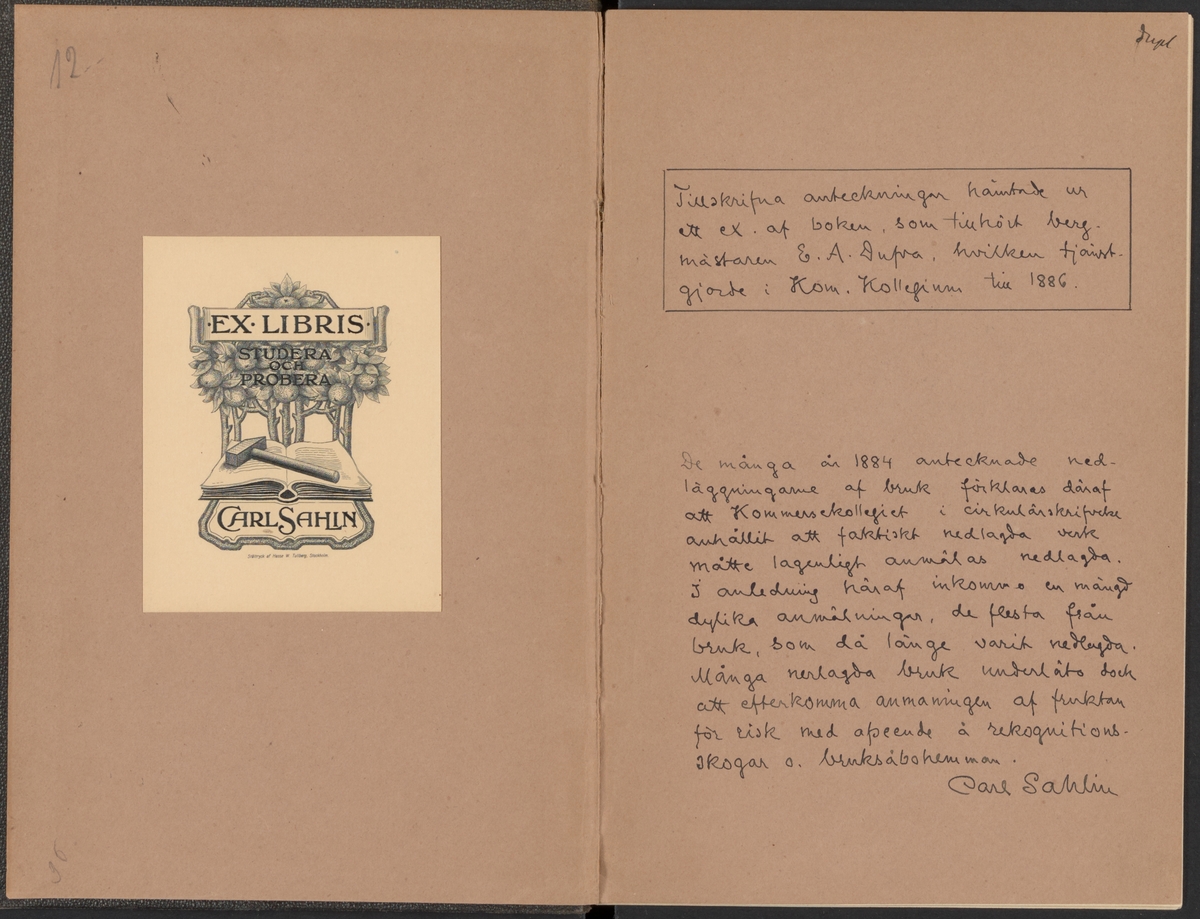 12-
EX·LIBRIS·
STUDERA
OCH
PROBERA
CARL SAHLIN
Dupl
Tillskrifna anteckningar hämtade ur
ett ex. af boken, som tillhört berg-
mästaren E. A. Dufva, hvilken tjänst-
gjorde i Kom. Kollegium till 1886.
De många år 1884 antecknade ned-
läggningarne af bruk förklaras däraf
att Kommersekollegiet i cirkulärskrifvelse
anhållit att faktiskt nedlagda verk
måtte lagenligt anmälas nedlagda.
I anledning häraf inkommo en mängd
dylika anmälningar, de flesta från
bruk, som då länge varit nedlagda.
Många nerlagda bruk underläto dock
att efterkomma anmaningen af fruktan
för risk med afseende å rekognitions-
skogar o. bruksåbohemman.
Carl Sahlin